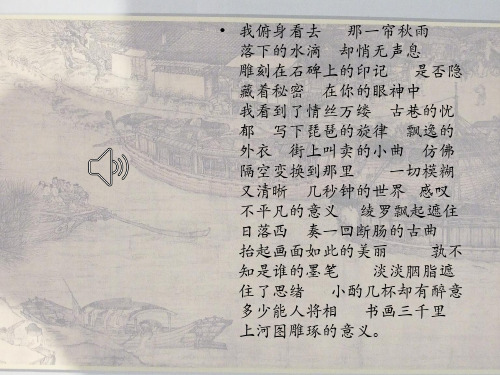 • 我俯身看去　　那一帘秋雨
落下的水滴　却悄无声息
雕刻在石碑上的印记　　是否隐
藏着秘密　在你的眼神中
我看到了情丝万缕　古巷的忧
郁　写下琵琶的旋律　飘逸的
外衣　街上叫卖的小曲　仿佛
隔空变换到那里　　一切模糊
又清晰　几秒钟的世界　感叹
不平凡的意义　绫罗飘起遮住
日落西　奏一回断肠的古曲
抬起画面如此的美丽　　孰不
知是谁的墨笔　　淡淡胭脂遮
住了思绪　小酌几杯却有醉意
多少能人将相　　书画三千里
上河图雕琢的意义。